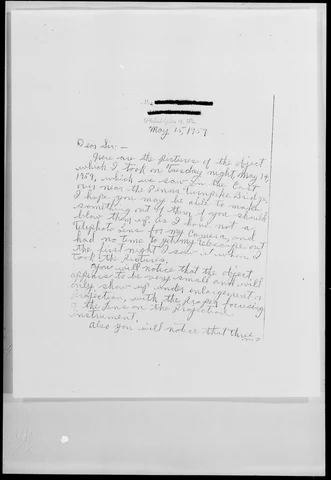 Philadelphia, Pa.
May 15, 1957
Dear Sir:-
Here are the pictures of the object
which I took on Tuesday night May 14,
1957, which we saw in the East
over near the Penna turnpike Bridge.
I hope you may be able to make
something out of them if you should
blow them up, as I have not a
telephoto lens for my Camera, and
had no time to get my telescope out
the first night I saw it when I
took the pictures.
You will notice that the object
appears to be very small and will
only show up under enlargement or
projection, with the proper focusing
of the lens on the projection
instrument.
Also you will notice that three